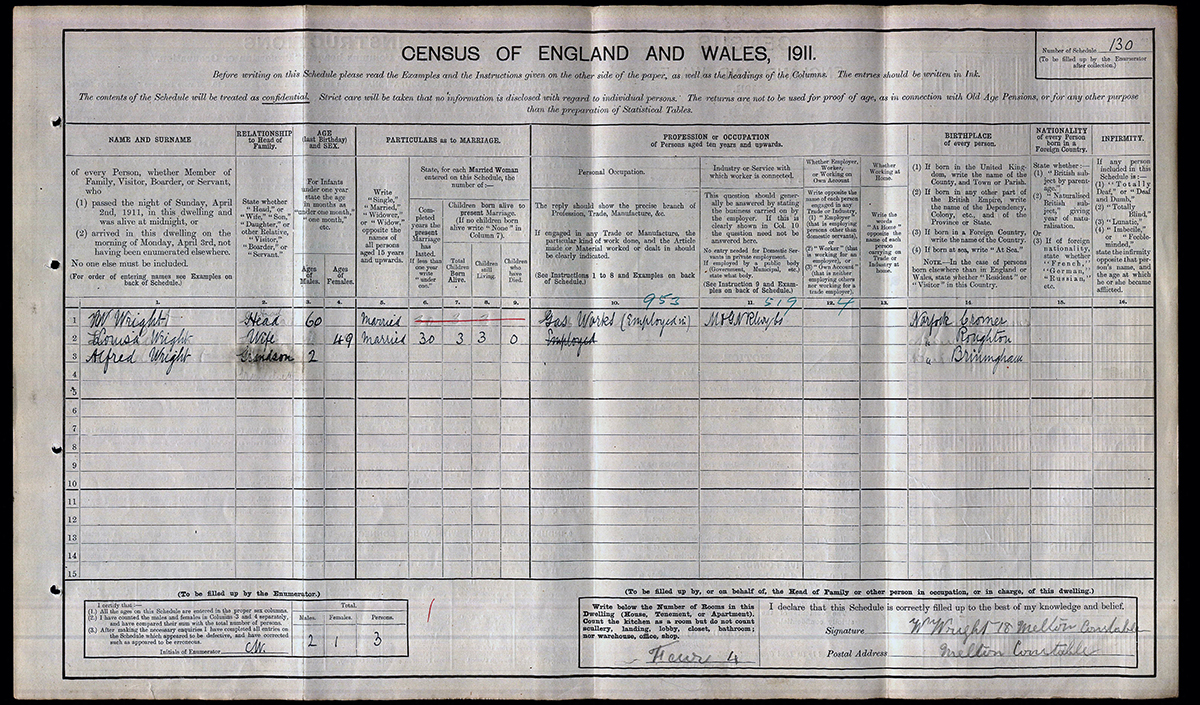 CENSUS OF ENGLAND AND WALES, 1911.
Number of Schedule 130
(To be filled up by the Enumerator
after collection.)
Before writing on this Schedule please read the Examples and the Instructions given on the other side of the paper, as well as the headings of the Columns. The entries should be written in Ink.
The contents of the Schedule will be treated as confidential. Strict care will be taken that no information is disclosed with regard to individual persons. The returns are not to be used for proof of age, as in connection with Old Age Pensions, or for any other purpose
than the preparation of Statistical Tables.
NAME AND SURNAME
of every Person, whether Member of
Family, Visitor, Boarder, or Servant,
who
(1) passed the night of Sunday, April
2nd, 1911, in this dwelling and
was alive at midnight, or
(2) arrived in this dwelling on the
morning of Monday, April 3rd, not
having been enumerated elsewhere.
No one else must be included.
(For order of entering names see Examples on
back of Schedule.)
RELATIONSHIP
to Head of
Family.
State whether
"Head," or
"Wife," "Son,"
"Daughter," or
other Relative,
"Visitor,"
"Boarder," or
"Servant."
AGE
(last Birthday)
and SEX.
For Infants
under one year
state the age
in months as
"under one month,"
"one month,"
etc.
Ages
of
Males.
Ages
of
Females.
PARTICULARS as to MARRIAGE.
Write
"Single,"
"Married,"
"Widower,"
or "Widow,"
opposite the
names of
all persons
aged 15 years
and upwards.
State, for each Married Woman
entered on this Schedule, the
number of:—
Com-
pleted
years the
present
Marriage
has
lasted.
If less than
one year
write
"under
one."
Children born alive to
present Marriage.
(If no children born
alive write "None" in
Column 7).
Total
Children
Born
Alive.
Children
still
Living.
Children
who
have
Died.
PROFESSION or OCCUPATION
of Persons aged ten years and upwards.
Personal Occupation.
The reply should show the precise branch of
Profession, Trade, Manufacture, &c.
If engaged in any Trade or Manufacture, the
particular kind of work done, and the Article
made or Material worked or dealt in should
be clearly indicated.
(See Instructions 1 to 8 and Examples on back
of Schedule.)
Industry or Service with
which worker is connected.
This question should gener-
ally be answered by stating
the business carried on by
the employer. If this is
clearly shown in Col. 10
the question need not be
answered here.
No entry needed for Domestic Ser-
vants in private employment.
If employed by a public body
(Government, Municipal, etc.)
state what body.
(See Instruction 9 and Exam-
ples on back of Schedule.)
Whether Employer,
Worker,
or Working on
Own Account
Write opposite the
name of each person
engaged in any
Trade or Industry,
(1) "Employer" (that
is employing
persons other than
domestic servants),
or
(2) "Worker" (that
is working for an
employer), or
(3) "Own Account"
(that is neither
employing others
nor working for a
trade employer).
Whether
Working at
Home.
Write the
words
"At Home"
opposite the
name of each
person
carrying on
Trade or
Industry at
home.
BIRTHPLACE
of every person.
(1) If born in the United King-
dom, write the name of the
County, and Town or Parish.
(2) If born in any other part of
the British Empire, write
the name of the Dependency,
Colony, etc., and of the
Province or State.
(3) If born in a Foreign Country,
write the name of the Country.
(4) If born at sea, write "At Sea."
NOTE.—In the case of persons
born elsewhere than in England or
Wales, state whether "Resident" or
"Visitor" in this Country.
NATIONALITY
of every Person
born in a
Foreign Country.
State whether:—
(1) "British sub-
ject by parent-
age."
(2) "Naturalised
British sub-
ject," giving
year of natu-
ralisation.
Or
(3) If of foreign
nationality,
state whether
"French,"
"German,"
"Russian,"
etc.
INFIRMITY.
If any person
included in this
Schedule is:—
(1) "Totally
Deaf," or "Deaf
and Dumb,"
(2) "Totally
Blind,"
(3) "Lunatic,"
(4) "Imbecile,"
or "Feeble-
minded,"
state the infirmity
opposite that per-
son's name, and
the age at which
he or she became
afflicted.
1. 2. 3. 4. 5. 6. 7. 8. 9. 10. 11. 12. 13. 14. 15. 16.
953 519 4
1 W Wright Head 60 Married Gas Works (Employed in) M&GNRlwyJts Norfolk Cromer
2 Wright Wife 49 Married 30 3 3 0 Employed " Roughton
3 Alfred Wright Grandson 2 " Briningham
4
5
6
7
8
9
10
11
12
13
14
15
(To be filled up by the Enumerator.)
I certify that:—
(1.) All the ages on this Schedule are entered in the proper sex columns.
(2.) I have counted the males and females in Columns 3 and 4 separately,
and have compared their sum with the total number of persons.
(3.) After making the necessary enquiries I have completed all entries on
the Schedule which appeared to be defective, and have corrected
such as appeared to be erroneous.
Initials of Enumerator
Total.
Males. Females. Persons.
2 1 3
(To be filled up by, or on behalf of, the Head of Family or other person in occupation, or in charge, of this dwelling.)
Write below the Number of Rooms in this
Dwelling (House, Tenement, or Apartment).
Count the kitchen as a room but do not count
scullery, landing, lobby, closet, bathroom;
nor warehouse, office, shop.
Four 4
I declare that this Schedule is correctly filled up to the best of my knowledge and belief.
Signature W Wright 18 Melton Constable
Postal Address Melton Constable